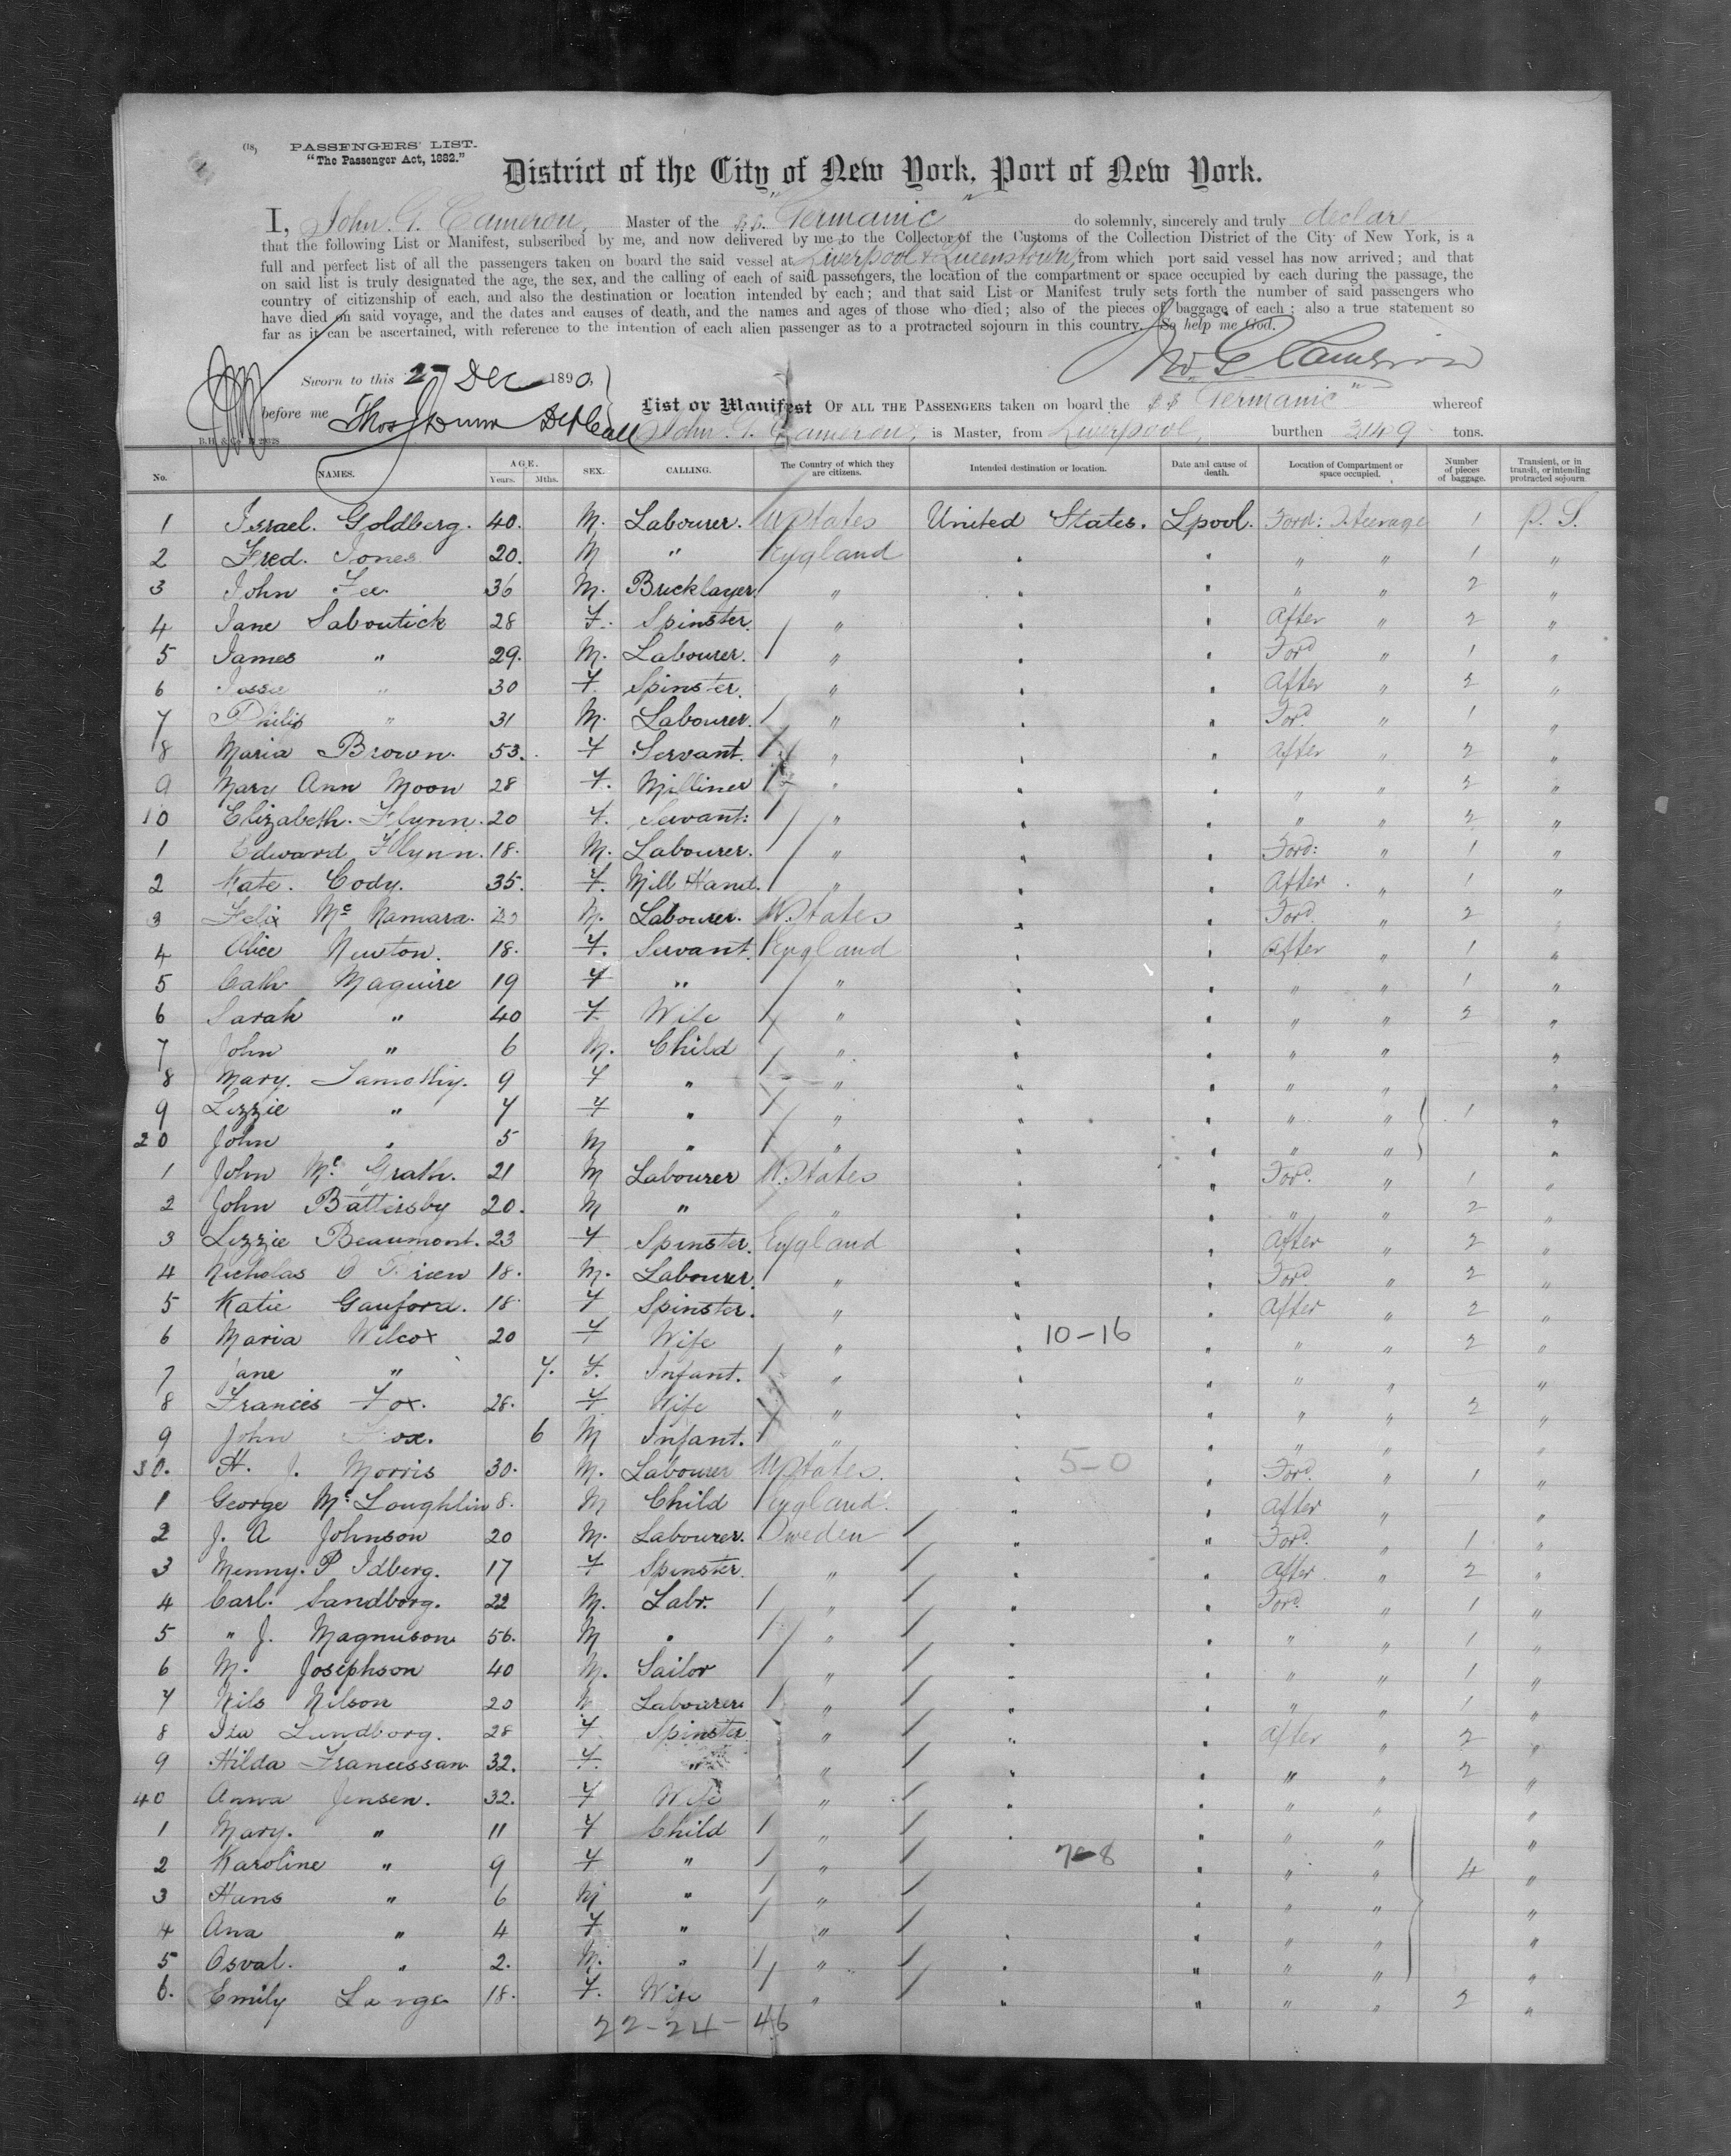 (18) PASSENGERS' LIST.
"The Passenger Act, 1882."
District of the City of New York, Port of New York.
I, John. G. Cameron, Master of the S.S. "Germanic" do solemnly, sincerely and truly declare
that the following List or Manifest, subscribed by me, and now delivered by me to the Collector of the Customs of the Collection District of the City of New York, is a
full and perfect list of all the passengers taken on board the said vessel at Liverpool & Queenstown, from which port said vessel has now arrived; and that
on said list is truly designated the age, the sex, and the calling of each of said passengers, the location of the compartment or space occupied by each during the passage, the
country of citizenship of each, and also the destination or location intended by each; and that said List or Manifest truly sets forth the number of said passengers who
have died on said voyage, and the dates and causes of death, and the names and ages of those who died; also of the pieces of baggage of each; also a true statement so
far as it can be ascertained, with reference to the intention of each alien passenger as to a protracted sojourn in this country. So help me God.
Jno G Cameron
Sworn to this 27 Dec 1890,
before me Thos Dunn
List or Manifest OF ALL THE PASSENGERS taken on board the SS "Germanic" whereof
John. G. Cameron, is Master, from Liverpool, burthen 3149 tons.
No. NAMES. AGE. Years. Mths. SEX. CALLING. The Country of which they are citizens. Intended destination or location. Date and cause of death. Location of Compartment or space occupied. Number of pieces of baggage. Transient, or in transit, or intending protracted sojourn.
1 Israel. Goldberg. 40. M. Labourer. U States United States. Lpool. Ford: Steerage 1 P. S.
2 Fred. Jones 20. M " England " " " " 1 "
3 John Fee 36 M. Bricklayer " " " " " 2 "
4 Jane Saboutick 28 F. Spinster. " " " After " 2 "
5 James " 29. M. Labourer. " " " Ford " 1 "
6 Jessie " 30 F. Spinster. " " " After " 2 "
7 Philip " 31 M. Labourer. " " " Ford " 1 "
8 Maria Brown. 53. F Servant. " " " After " 2 "
9 Mary Ann Moon 28 F. Milliner " " " " " 2 "
10 Elizabeth. Flynn. 20 F. Servant: " " " " " 2 "
1 Edward Flynn. 18. M. Labourer. " " " Ford: " 1 "
2 Kate. Cody. 35. F. Mill Hand. " " " After " 1 "
3 Felix Mc Namara. M. Labourer. U. States " " Ford " 2 "
4 Alice Newton. 18. F. Servant. England " " After " 1 "
5 Cath. Maguire 19 F " " " " " " 1 "
6 Sarah " 40 F Wife " " " " " 2 "
7 John " 6 M. Child " " " " " "
8 Mary. 9 F " " " " " " "
9 Lizzie " 7 F " " " " " " 1 "
20 John " 5 M " " " " " " "
1 John Mc Grath. 21 M Labourer U. States " " Ford. " 1 "
2 John Battersby 20. M " " " " " " 2 "
3 Lizzie Beaumont. 23 F Spinster. England " " After " 2 "
4 Nicholas O 18. M. Labourer. " " " Ford " 2 "
5 Katie Gauford. 18. F Spinster. " " " After " 2 "
6 Maria Wilcox 20 F Wife " " 10-16 " " " 2 "
7 Jane " 7. F. Infant. " " " " " "
8 Francis Fox. 28. F Wife " " " " " 2 "
9 John Fox. 6 M Infant. " " " " " "
30. H. J. Morris 30. M. Labourer U States. " 5-0 " Ford. " 1 "
1 George Mc Loughlin 8. M Child England. " " After " "
2 J. A Johnson 20 M. Labourer. Sweden " " Ford. " 1 "
3 Menny. P Idberg. 17 F Spinster. " " " After " 2 "
4 Carl. Sandborg. 22 M. Labr. " " " Ford " 1 "
5 " J. Magnuson 56. M " " " " " " 1 "
6 M. Josephson 40 M. Sailor " " " " " 1 "
7 Nils Nilson 20 M Labourer " " " " " 1 "
8 Ida Lundborg. 28 F. Spinster " " " After " 2 "
9 Hilda Francissan 32. F. " " " " " " 2 "
40 Anna Jensen. 32. F Wife " " " " " "
1 Mary. " 11 F Child " " " " " "
2 Karoline " 9 F " " " 7-8 " " " 4 "
3 Hans " 6 M " " " " " " "
4 Ana " 4 F " " " " " " "
5 Osval. " 2. M. " " " " " " "
6. Emily Large 18. F. Wife " " " " " 2 "
22-24-46